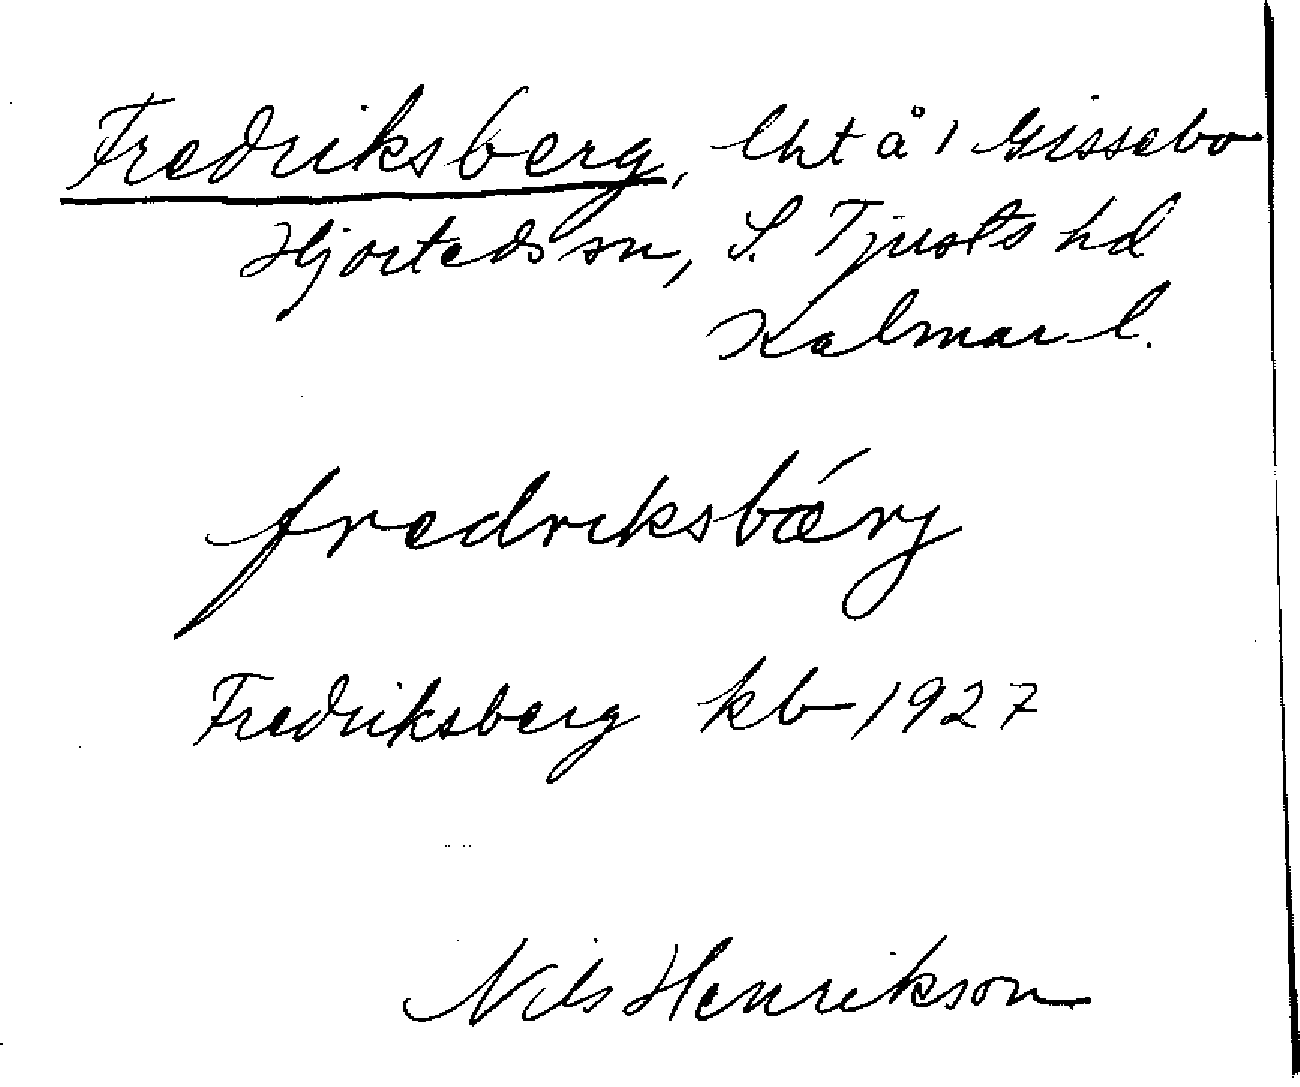 Fredriksberg, lht å 1 Gissebo
Hjorteds sn, S. Tjusts hd
Kalmar l.
fredriksbǽrj
Fredriksberg kb 1927
Nils Henrikson